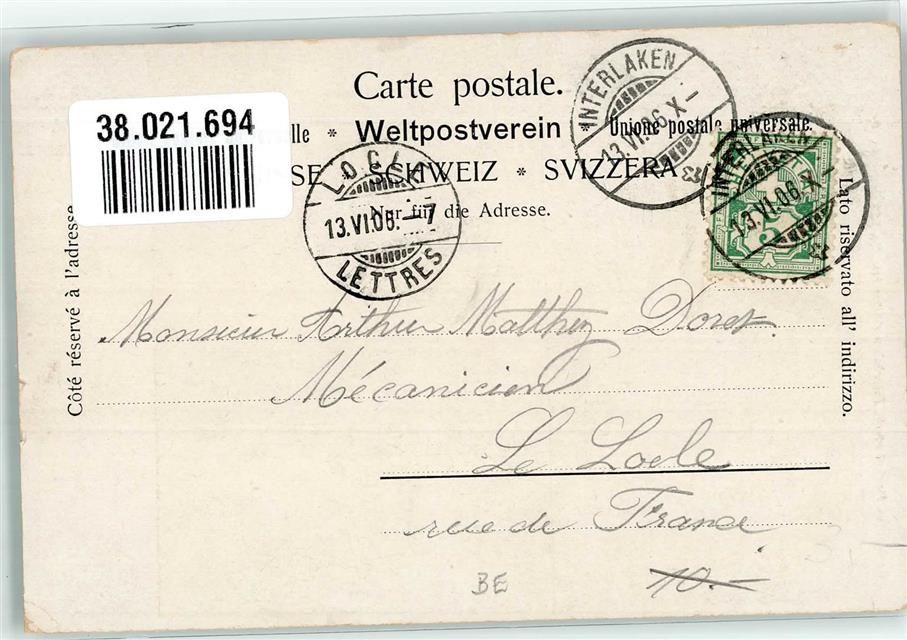 Carte postale.
38.021.694
lle * Weltpostverein * Unione postale universale.
SSE * SCHWEIZ * SVIZZERA
Nur für die Adresse.
INTERLAKEN
13.VI.06.X-
INTERLAKEN
13.VI.06.X-
LOCLE
13.VI.06.-7
LETTRES
Côté réservé à l'adresse.
Lato riservato all' indirizzo.
Monsieur Arthur Matthey Doret
Mécanicien
Le Locle
rue de France
BE
10.-